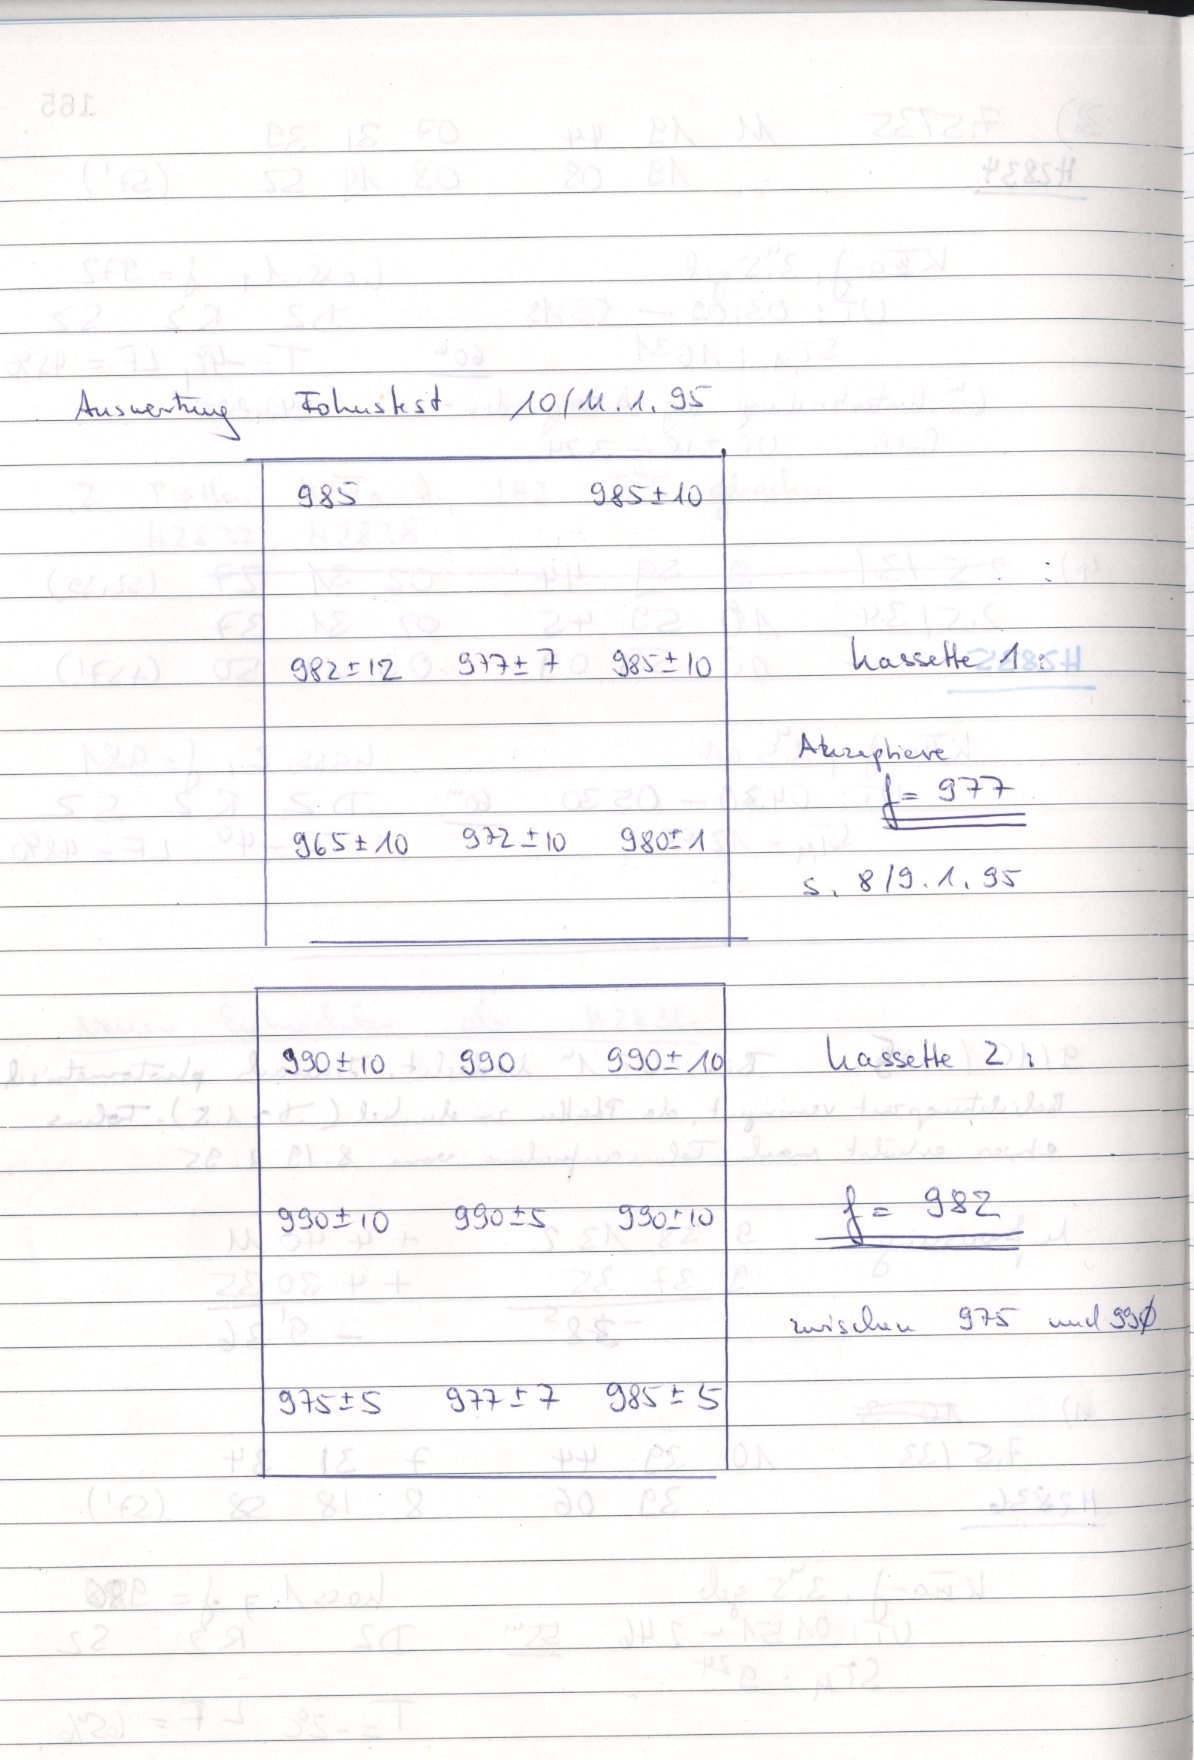 Auswertung Fokustest 10/11.1.95
985 985±10
982±12 977±7 985±10 Kassette 1:
Akzeptiere
f = 977
965±10 972±10 980±1
s. 8/9.1.95
990±10 990 990±10 Kassette 2:
990±10 990±5 990±10 f = 982
zwischen 975 und 990
975±5 977±7 985±5